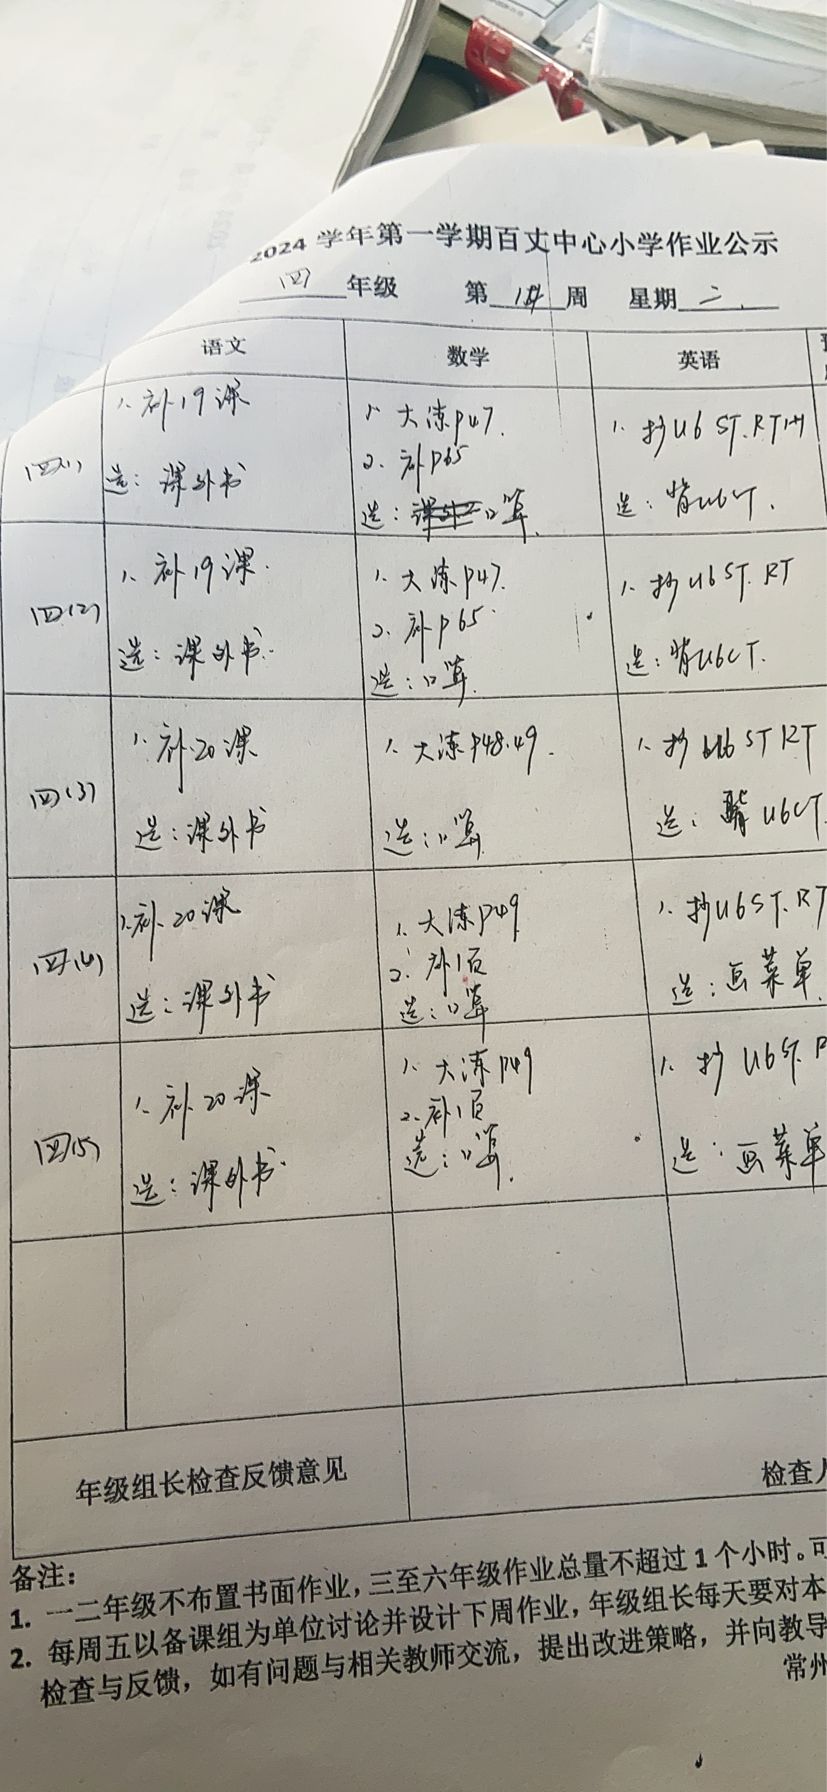 2024 学年第一学期百丈中心小学作业公示
四 年级 第 周 星期 二
语文 数学 英语
四(1)
1. 补19课
选：课外书
1. 大练P47.
2. 补P65
选： 口算.
1. 抄U6 ST.RT
选：背U6CT.
四(2)
1. 补19课.
选：课外书.
1. 大练P47.
2. 补P65
选：口算.
1. 抄U6ST.RT
选：背U6CT.
四(3)
1. 补20课
选：课外书
1. 大练P48.49.
选：口算.
1. 抄U6 ST RT
选：背U6CT.
四(4)
1.补20课
选：课外书
1. 大练P49
2. 补1页
选：口算
1. 抄U6ST.RT
选：画菜单
四(5)
1. 补20课
选：课外书.
1. 大练P49
2. 补1页
选：口算.
1. 抄U6ST.R
选：画菜单
年级组长检查反馈意见 检查人
备注：
1. 一二年级不布置书面作业，三至六年级作业总量不超过1个小时。可
2. 每周五以备课组为单位讨论并设计下周作业，年级组长每天要对本
检查与反馈，如有问题与相关教师交流，提出改进策略，并向教导
常州